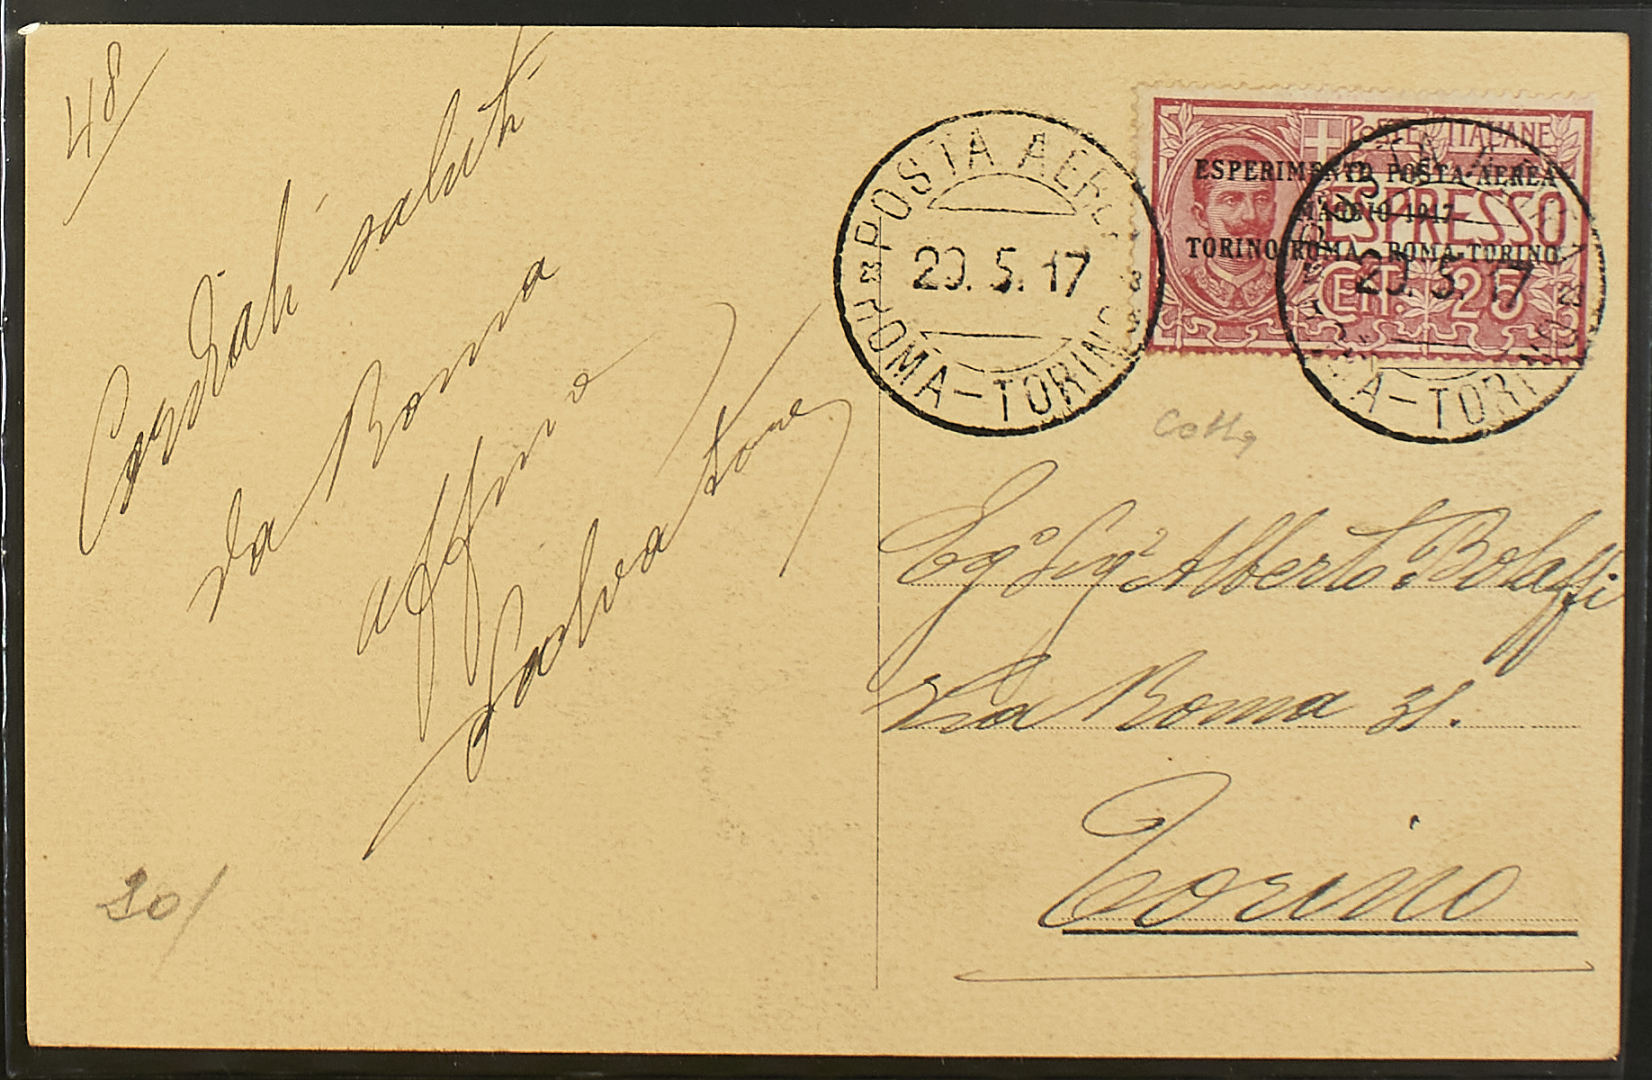 48
Cordiali saluti
da Roma
aff.mo
Salvatore
20/
POSTA AEREA
20.5.17
ROMA-TORINO
POSTE ITALIANE
ESPERIMENTO POSTA AEREA
MAGGIO 1917
TORINO-ROMA · ROMA-TORINO
ESPRESSO
CENT. 25
POSTA AEREA
20.5.17
ROMA-TORINO
Eg° Sig.r Alberto Bolaffi
Via Roma 31.
Torino